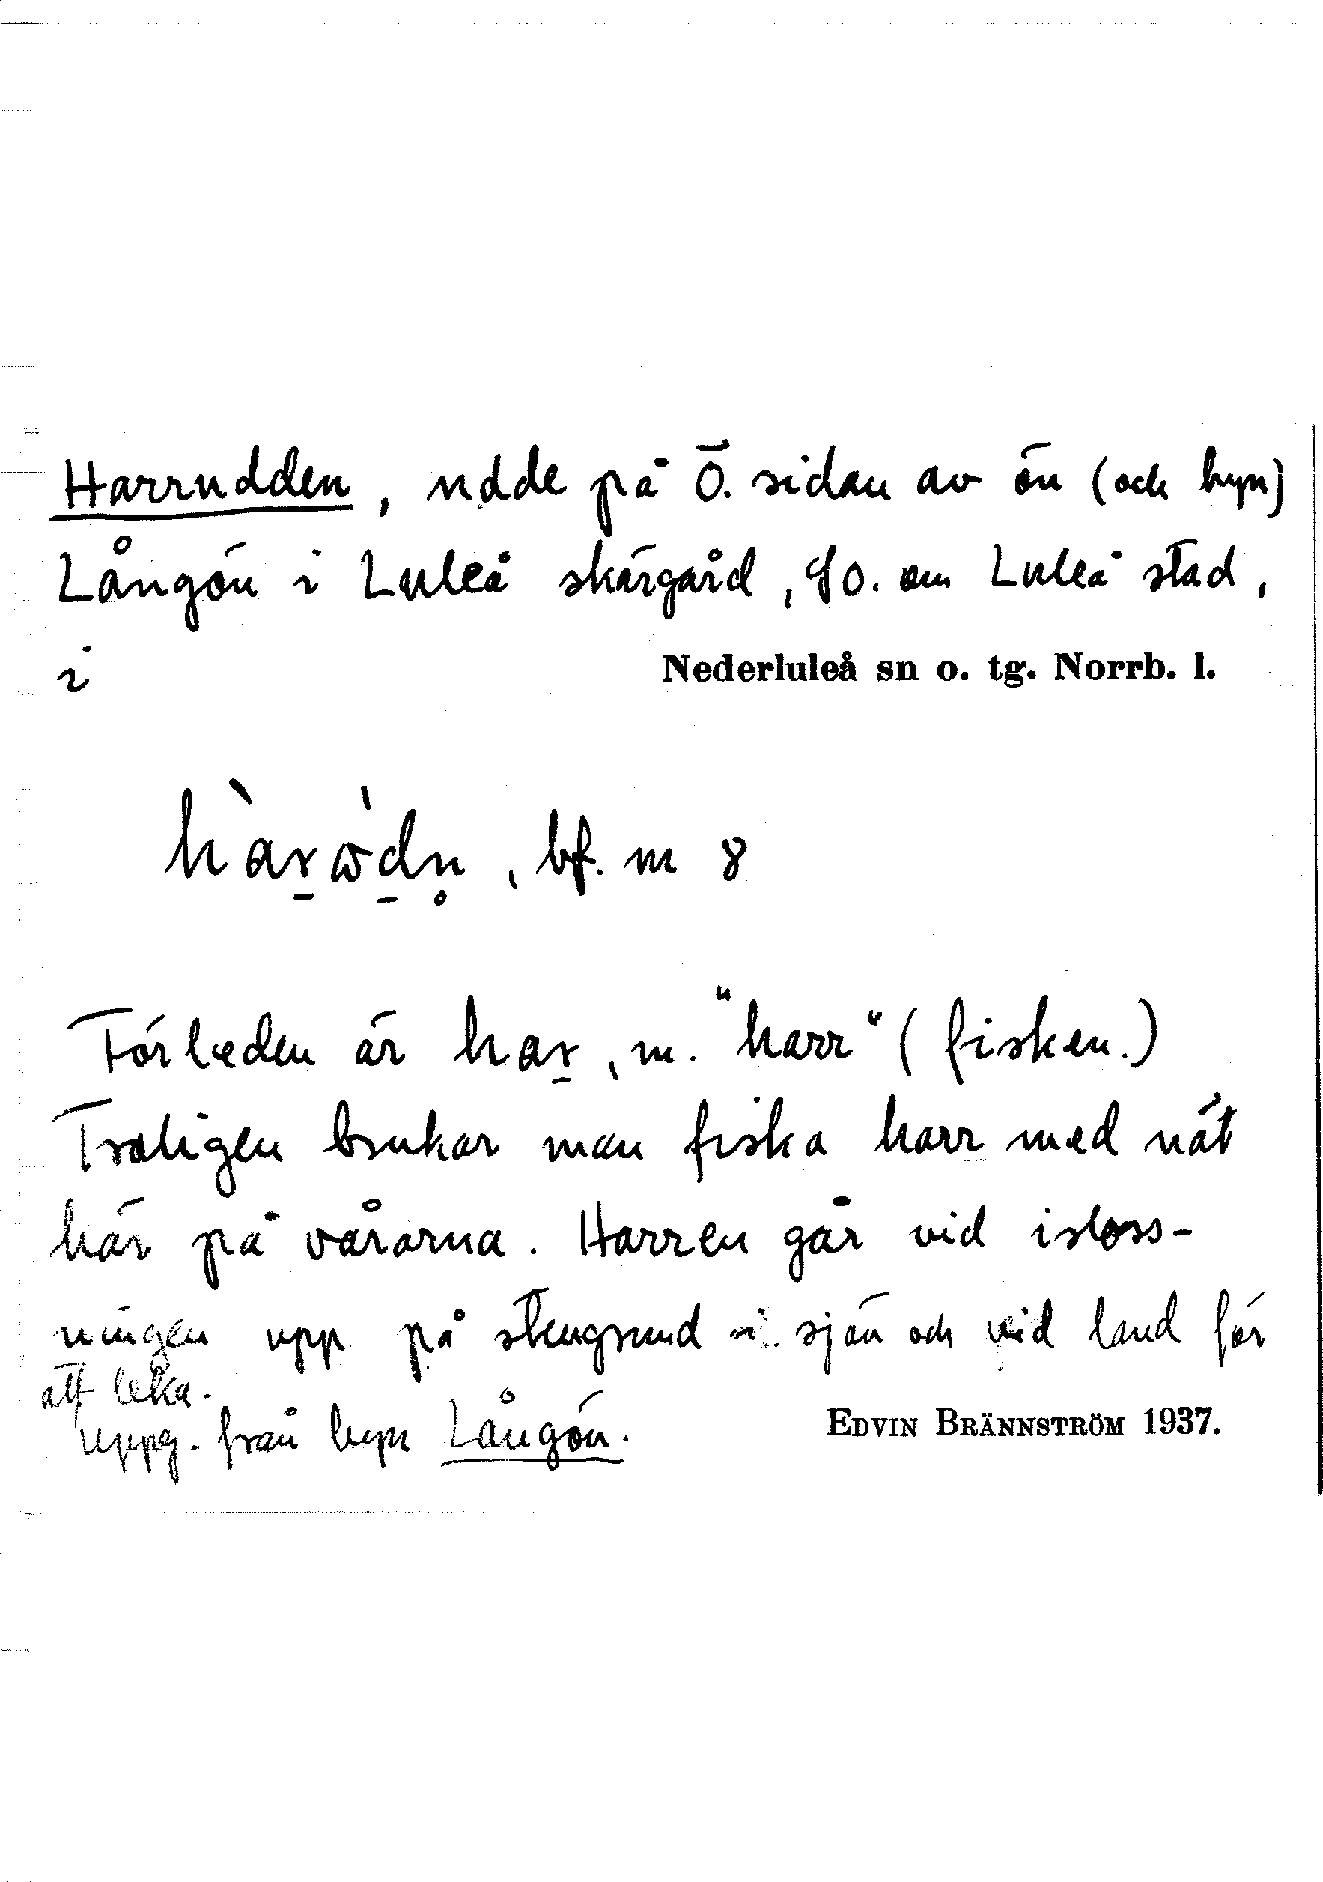 Harrudden, udde på Ö. sidan av ön (och byn)
Långön i Luleå skärgård, SO. om Luleå stad,
i Nederluleå sn o. tg. Norrb. l.
, bf. m 8
Förleden är har̲, m. "harr" (fisken.)
Troligen brukar man fiska harr med nät
här på vårarna. Harren går vid isloss-
ningen upp på stengrund i sjön och vid land för
att leka.
Uppg. från byn Långön.
EDVIN BRÄNNSTRÖM 1937.